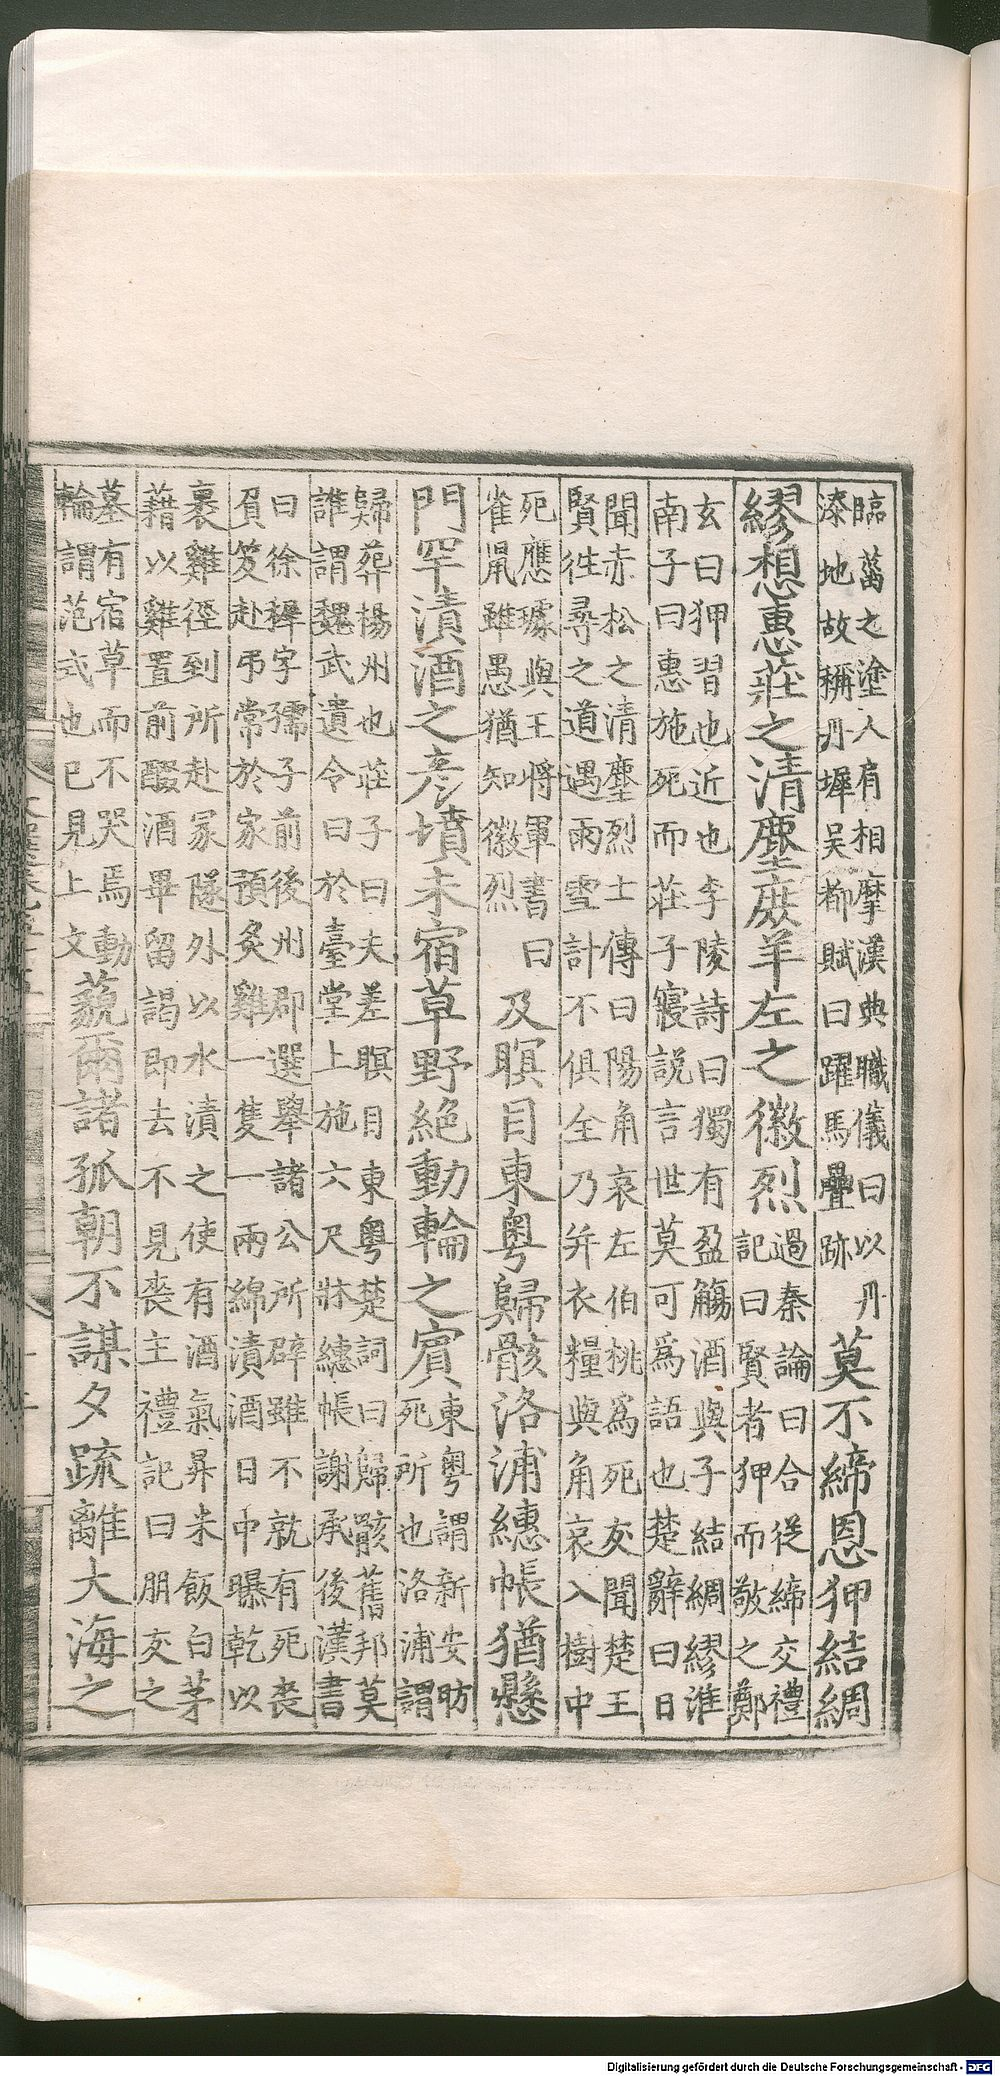 臨菑之塗人有相摩漢典職儀曰以丹
漆地故稱丹墀吳都賦曰躍馬疊跡
莫不締恩狎結綢
繆想惠莊之清塵庶羊左之徽烈
過秦論曰合從締交禮
記曰賢者狎而敬之鄭
玄曰狎習也近也李陵詩曰獨有盈觴酒與子結綢繆淮
南子曰惠施死而莊子寢說言世莫可爲語也楚辭曰日
聞赤松之清塵烈士傳曰陽角哀左伯桃爲死友聞楚王
賢徃尋之道遇雨雪計不俱全乃并衣糧與角哀入樹中
死應璩與王將軍書曰
雀鼠雖愚猶知徽烈
及瞑目東粤歸骸洛浦繐帳猶懸
門罕漬酒之彦墳未宿草野絶動輪之賓
東粤謂新安昉
死所也洛浦謂
歸葬楊州也莊子曰夫差瞑目東粤楚詞曰歸骸舊邦莫
誰謂魏武遺令曰於臺堂上施六尺牀繐帳謝承後漢書
曰徐穉字孺子前後州郡選舉諸公所辟雖不就有死喪
負笈赴弔常於家預炙雞一隻一兩綿漬酒日中曝乾以
裹雞徑到所赴冢隧外以水漬之使有酒氣昇米飯白茅
藉以雞置前醊酒畢留謁即去不見喪主禮記曰朋友之
墓有宿草而不哭焉動
輪謂范式也已見上文
藐爾諸孤朝不謀夕䟽離大海之
Digitalisierung gefördert durch die Deutsche Forschungsgemeinschaft - DFG